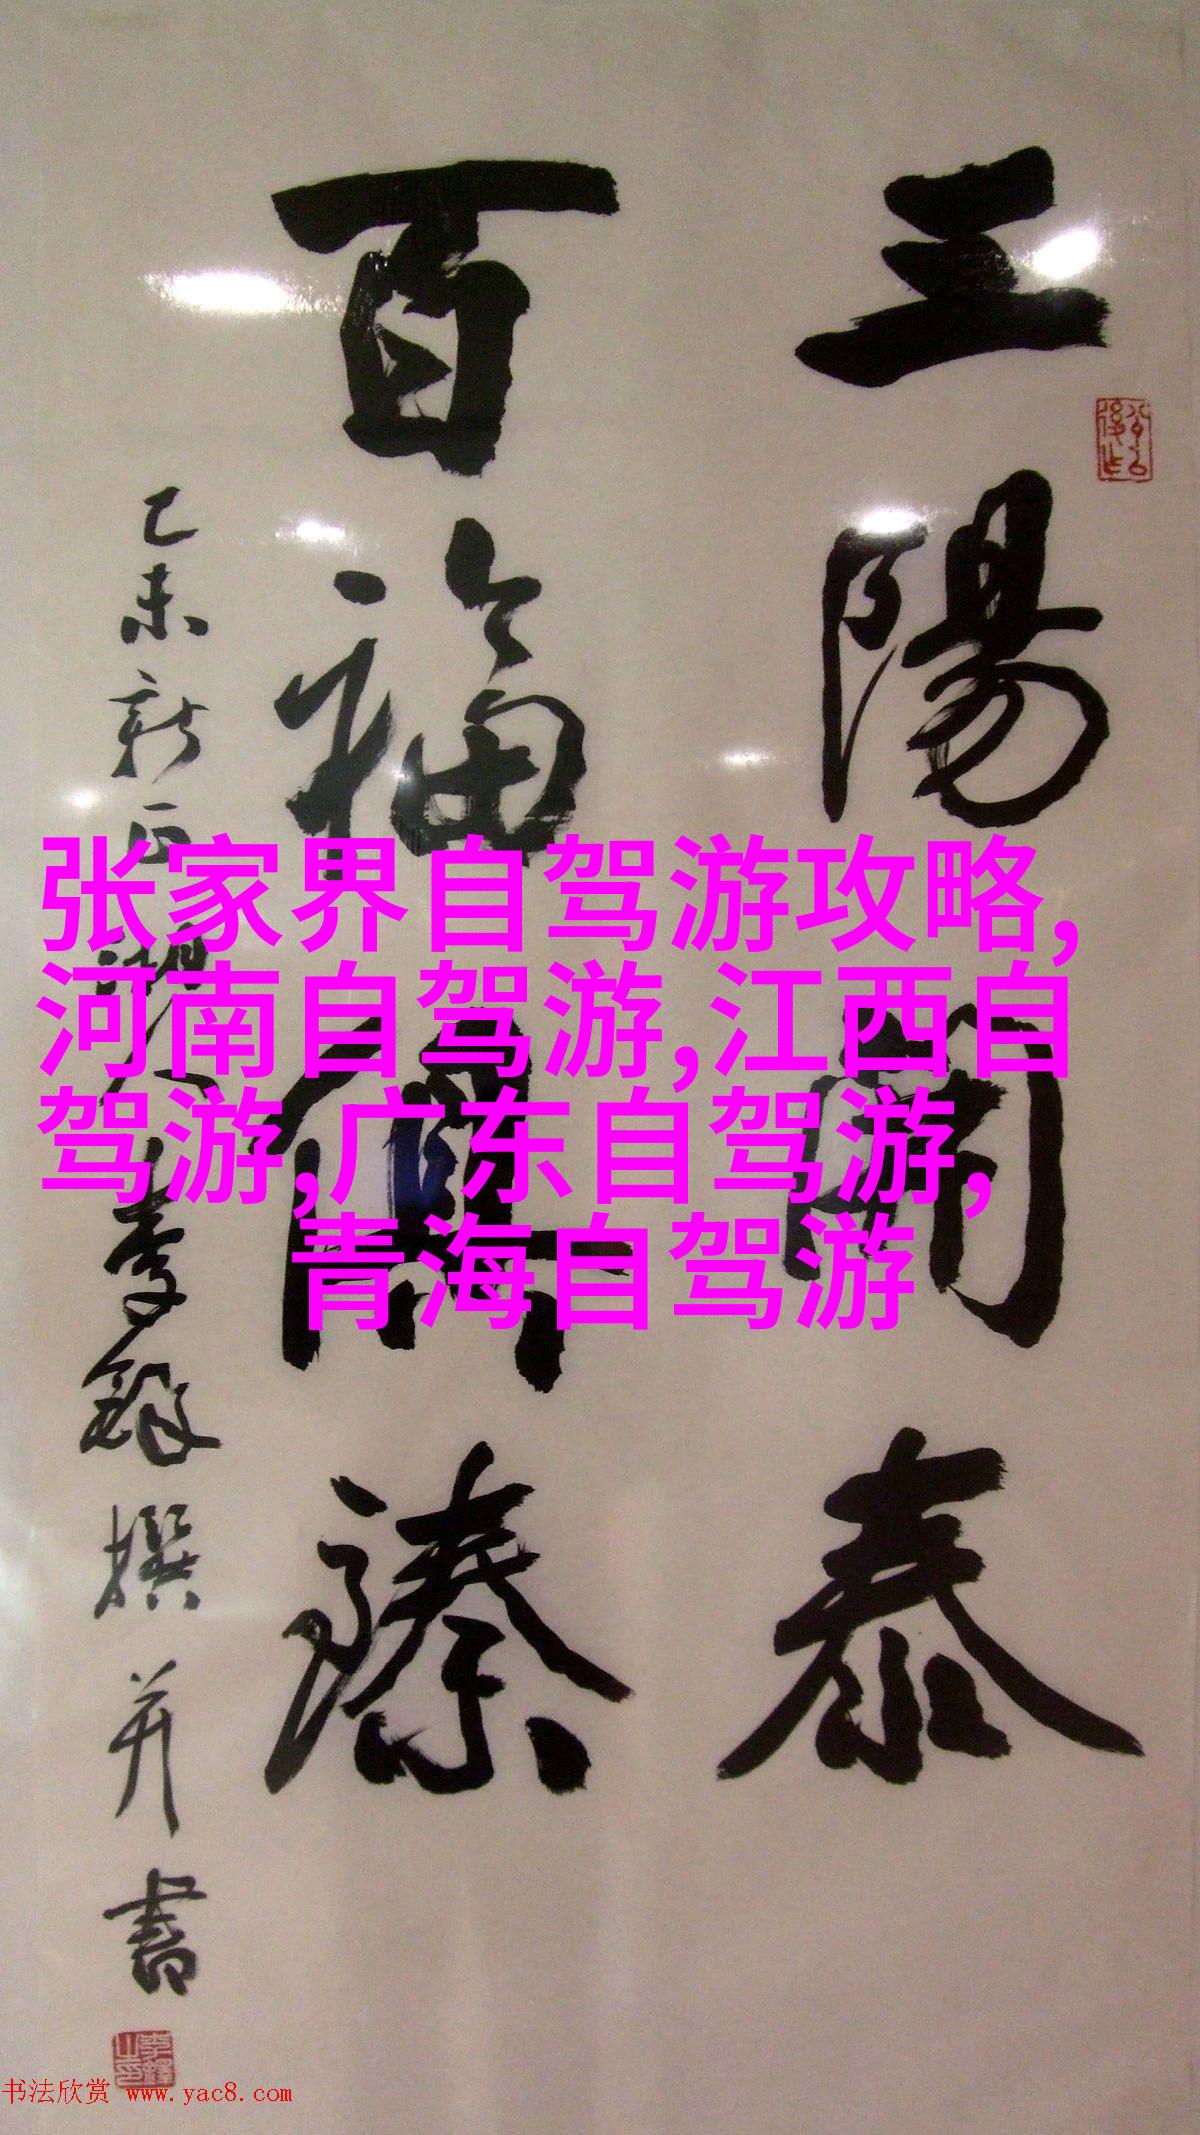 三陽開泰
百福俱臻
乙未新正湖人李鐸撰并書
张家界自驾游攻略,
河南自驾游,江西自
驾游,广东自驾游,
青海自驾游
书法欣赏 www.yac8.com